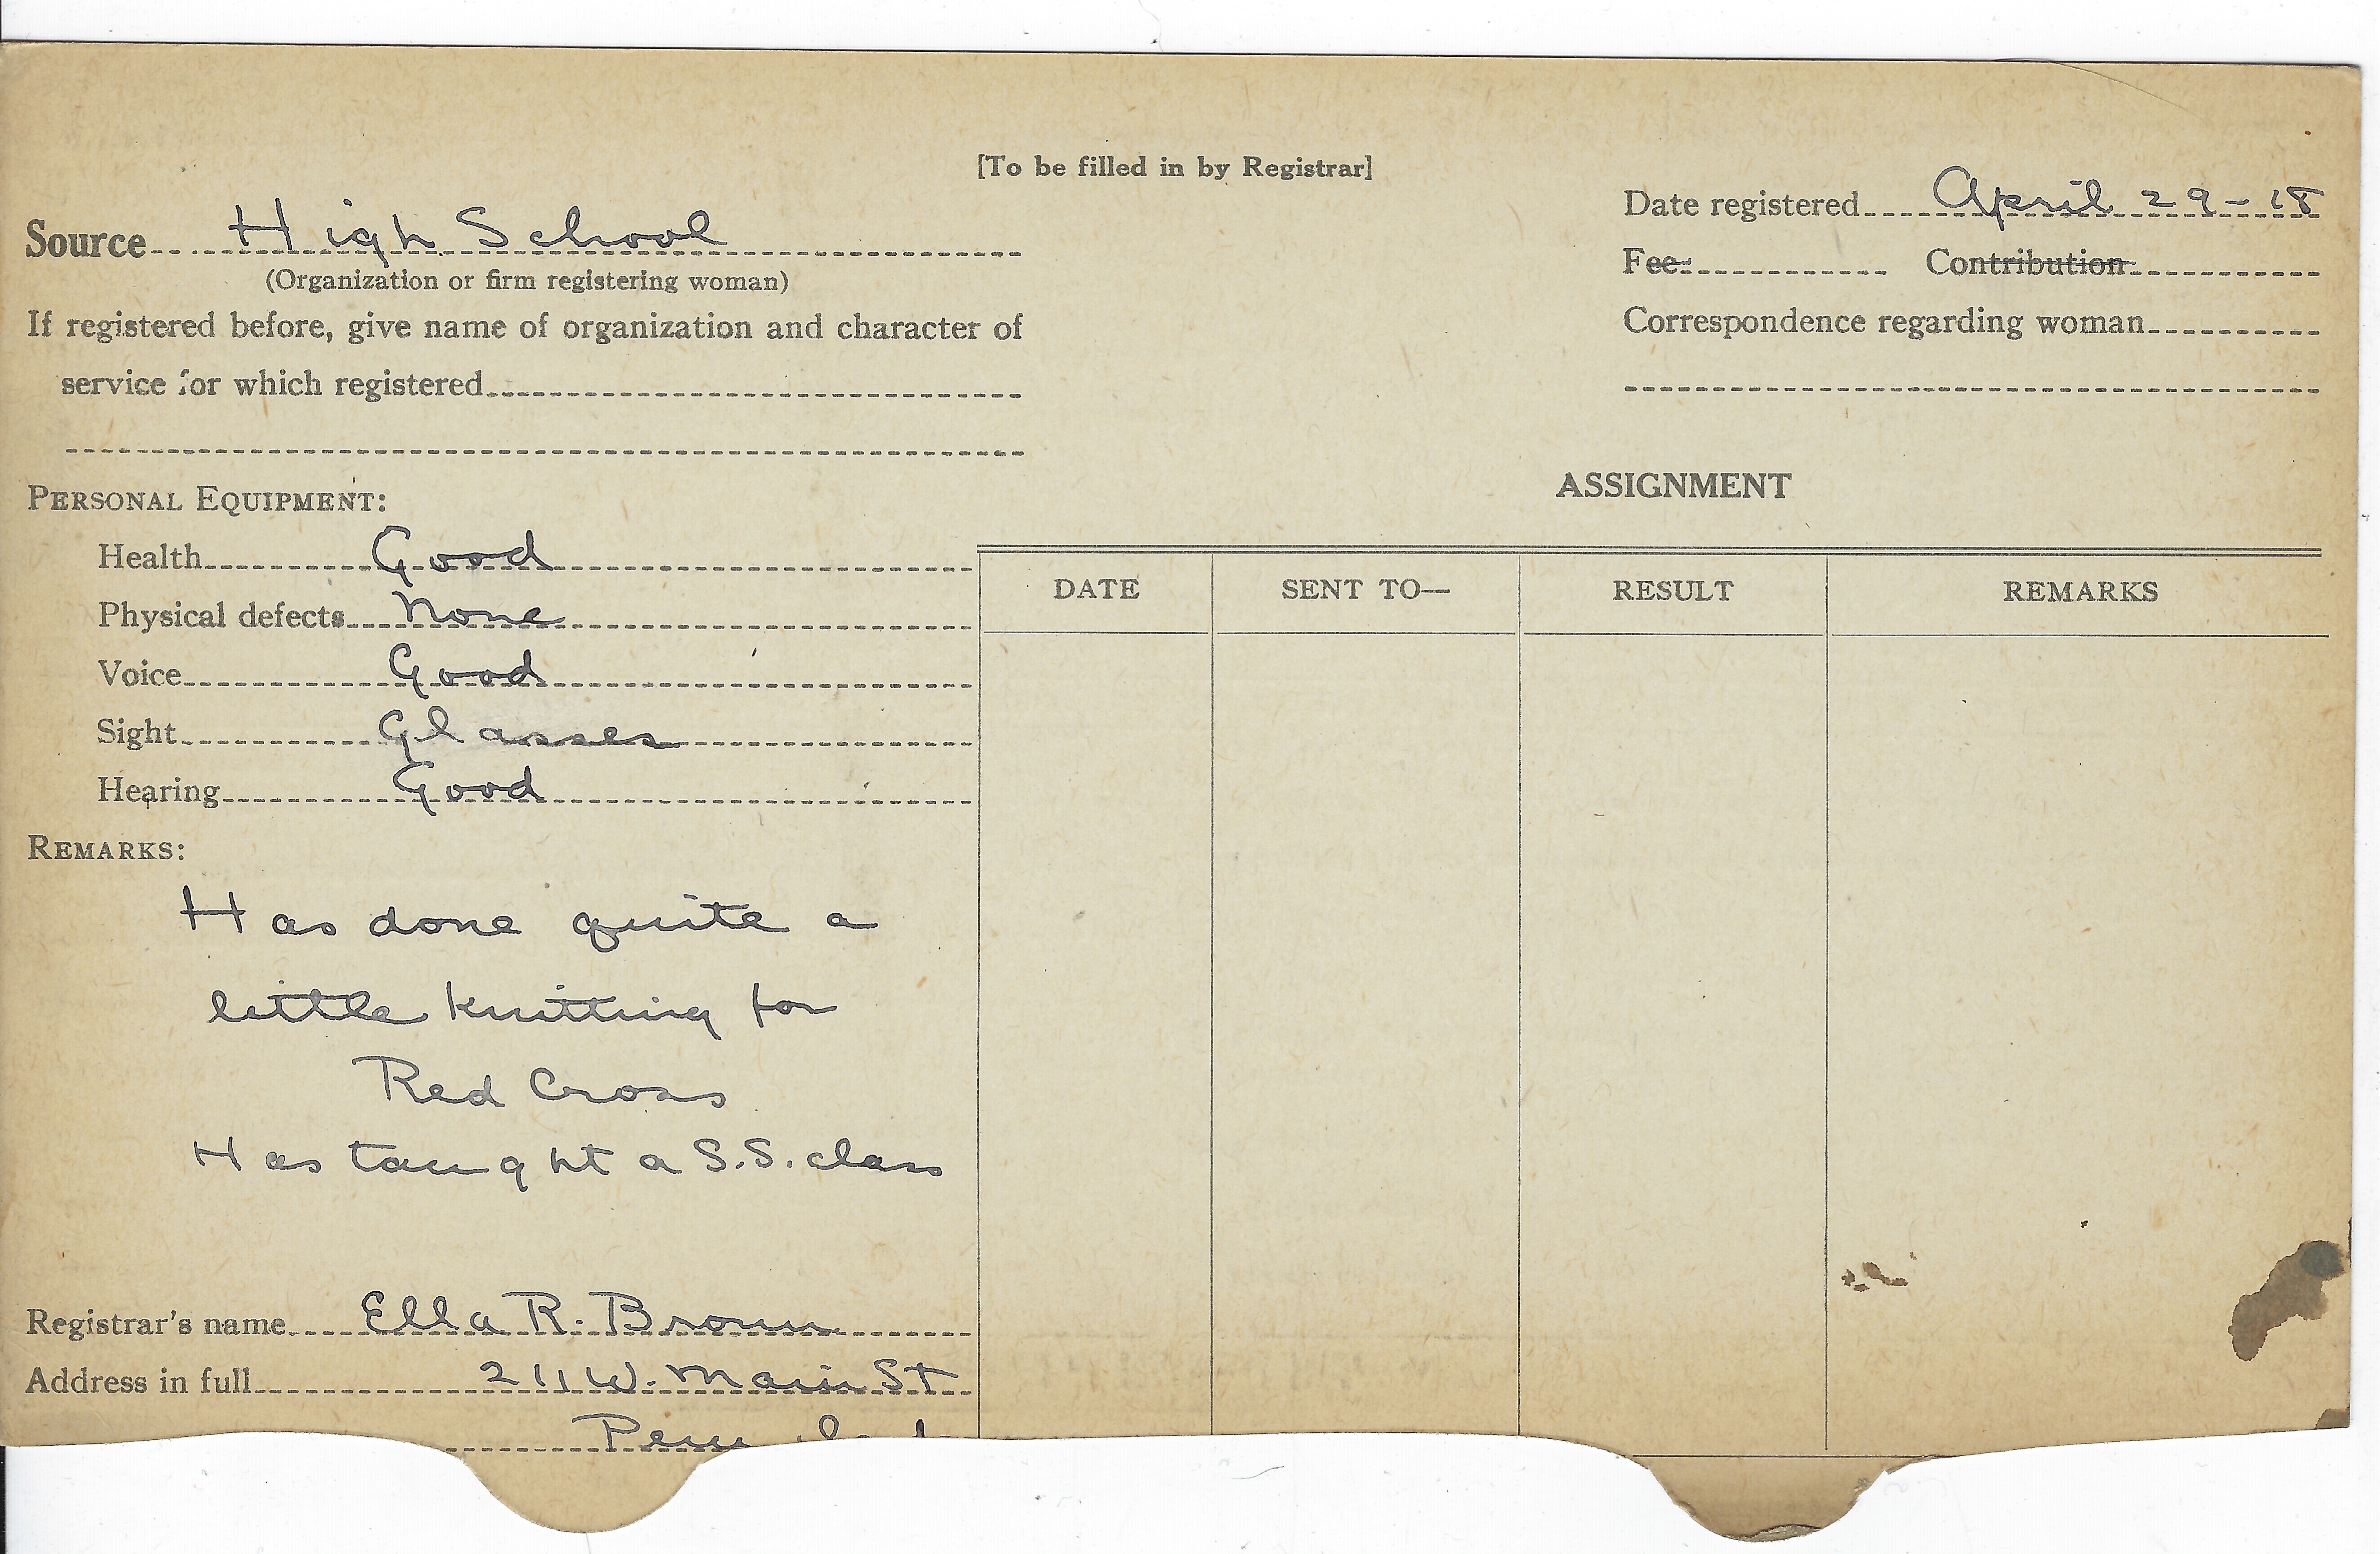 [To be filled in by Registrar]
Source High School
(Organization or firm registering woman)
If registered before, give name of organization and character of
service for which registered
Date registered April 29-18
Fee Contribution
Correspondence regarding woman
PERSONAL EQUIPMENT:
Health Good
Physical defects None
Voice Good
Sight Glasses
Hearing Good
REMARKS:
Has done quite a
little knitting for
Red Cross
Has taught a S.S. class
Registrar's name Ella R. Brown
Address in full 211 W. Main St
Peru
ASSIGNMENT
DATE SENT TO— RESULT REMARKS